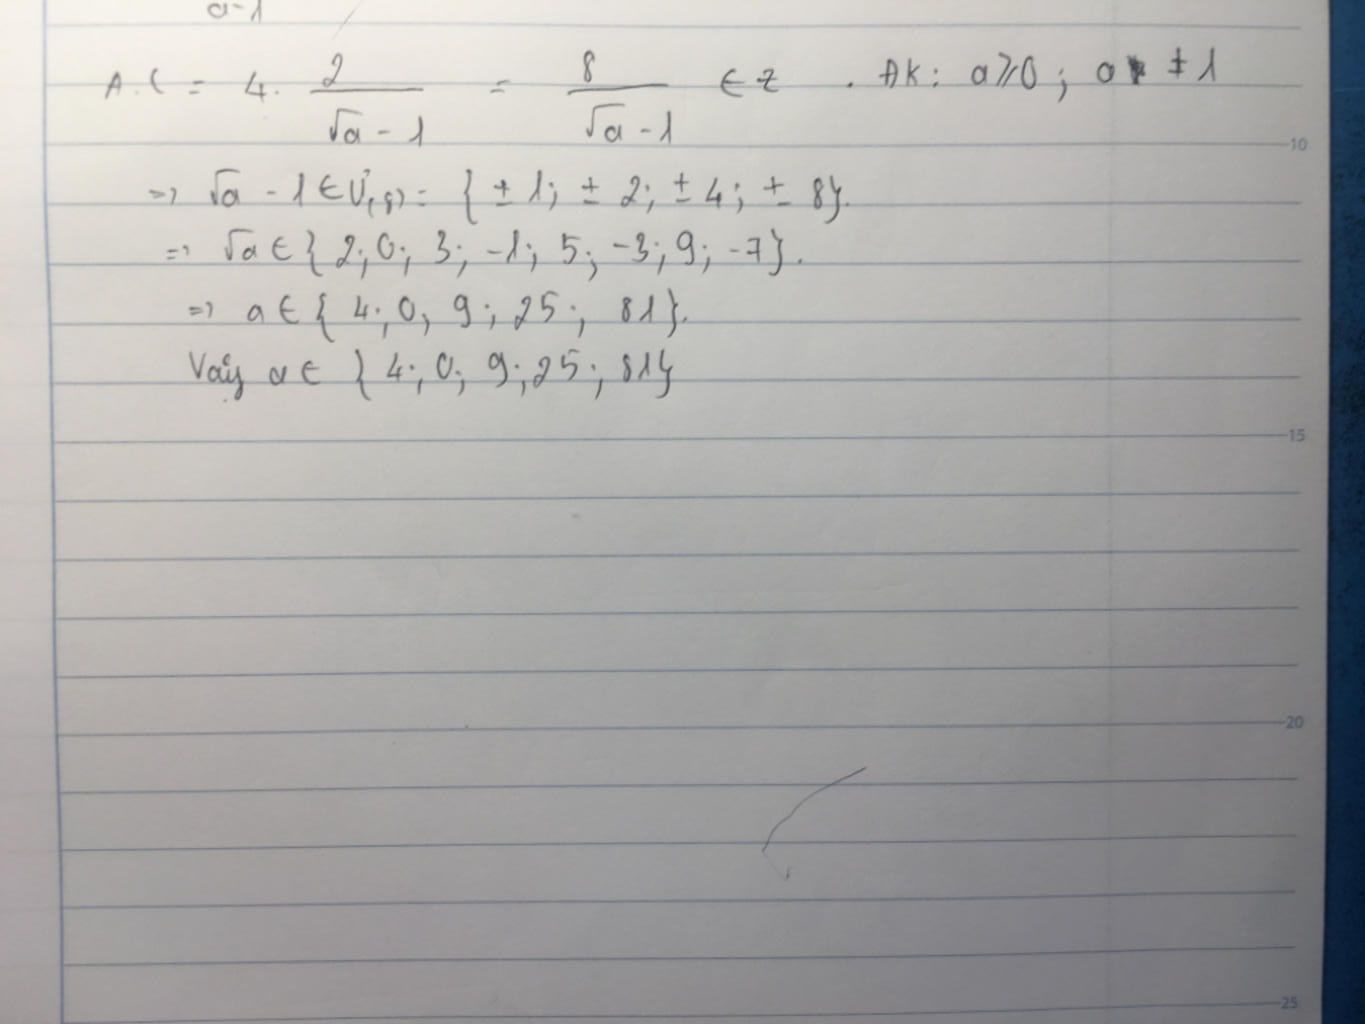 a-1
A.C = 4. 2/(√a - 1) = 8/(√a - 1) ∈ Z . ĐK: a≥0; a ≠ 1
=> √a - 1 ∈ Ư(8) = { ± 1; ± 2; ± 4; ± 8}.
=> √a ∈ { 2; 0; 3; -1; 5; -3; 9; -7}.
=> a ∈ { 4; 0; 9; 25; 81}.
Vậy a ∈ { 4; 0; 9; 25; 81}
10
15
20
25